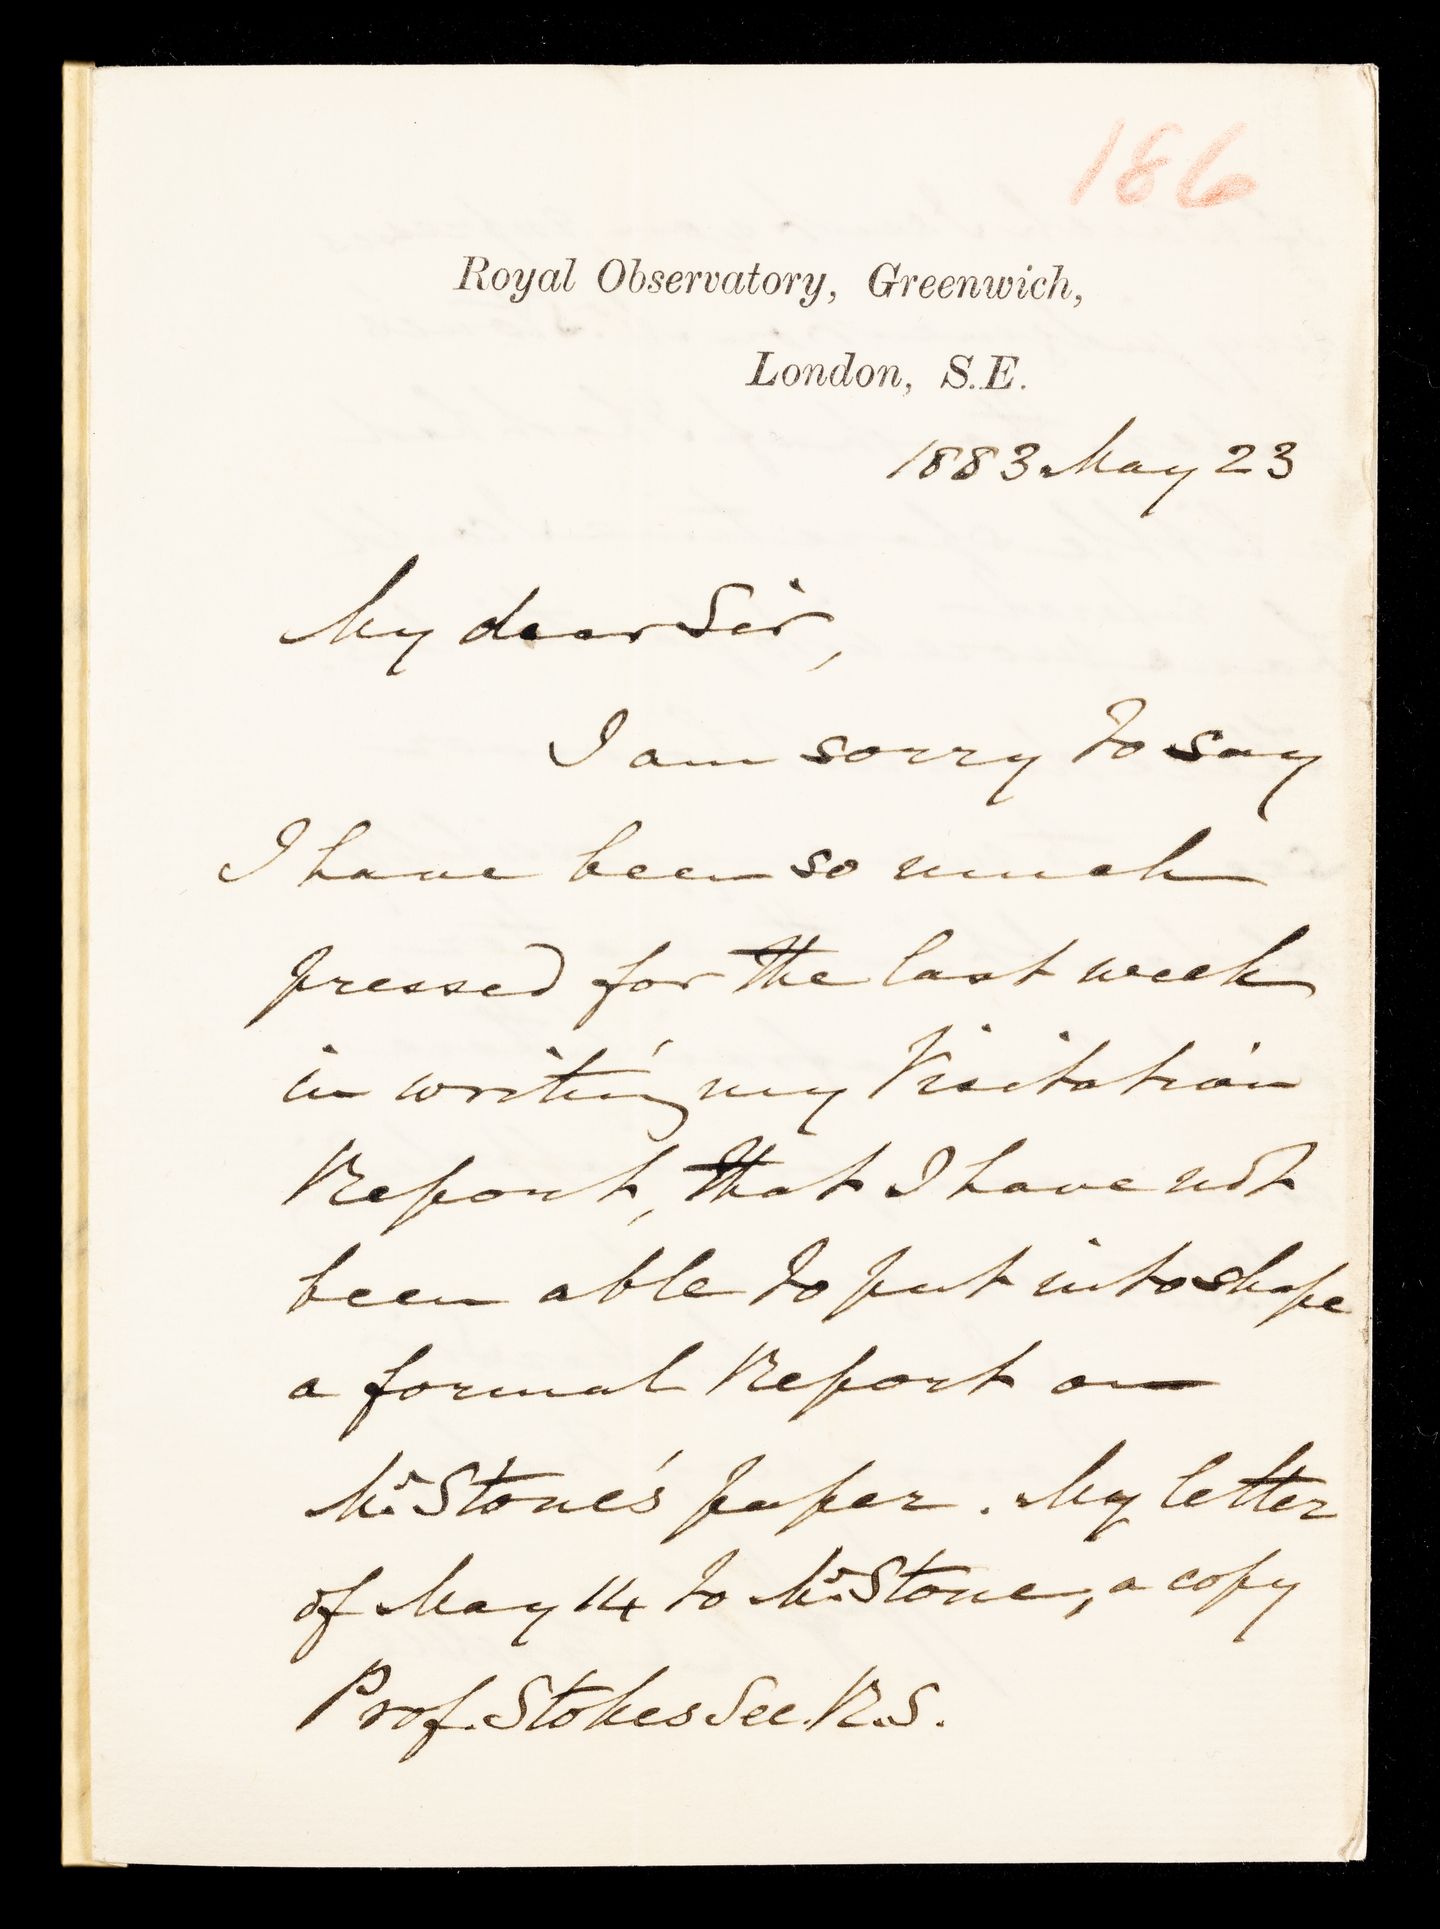 186
Royal Observatory, Greenwich,
London, S.E.
1883 May 23
My dear Sir,
I am sorry to say
I have been so much
pressed for the last week
in writing my Visitation
Report, that I have not
been able to put into shape
a formal Report on
Mr. Stone's paper. My letter
of May 14 to Mr. Stone, a copy
Prof. Stokes Sec. R.S.